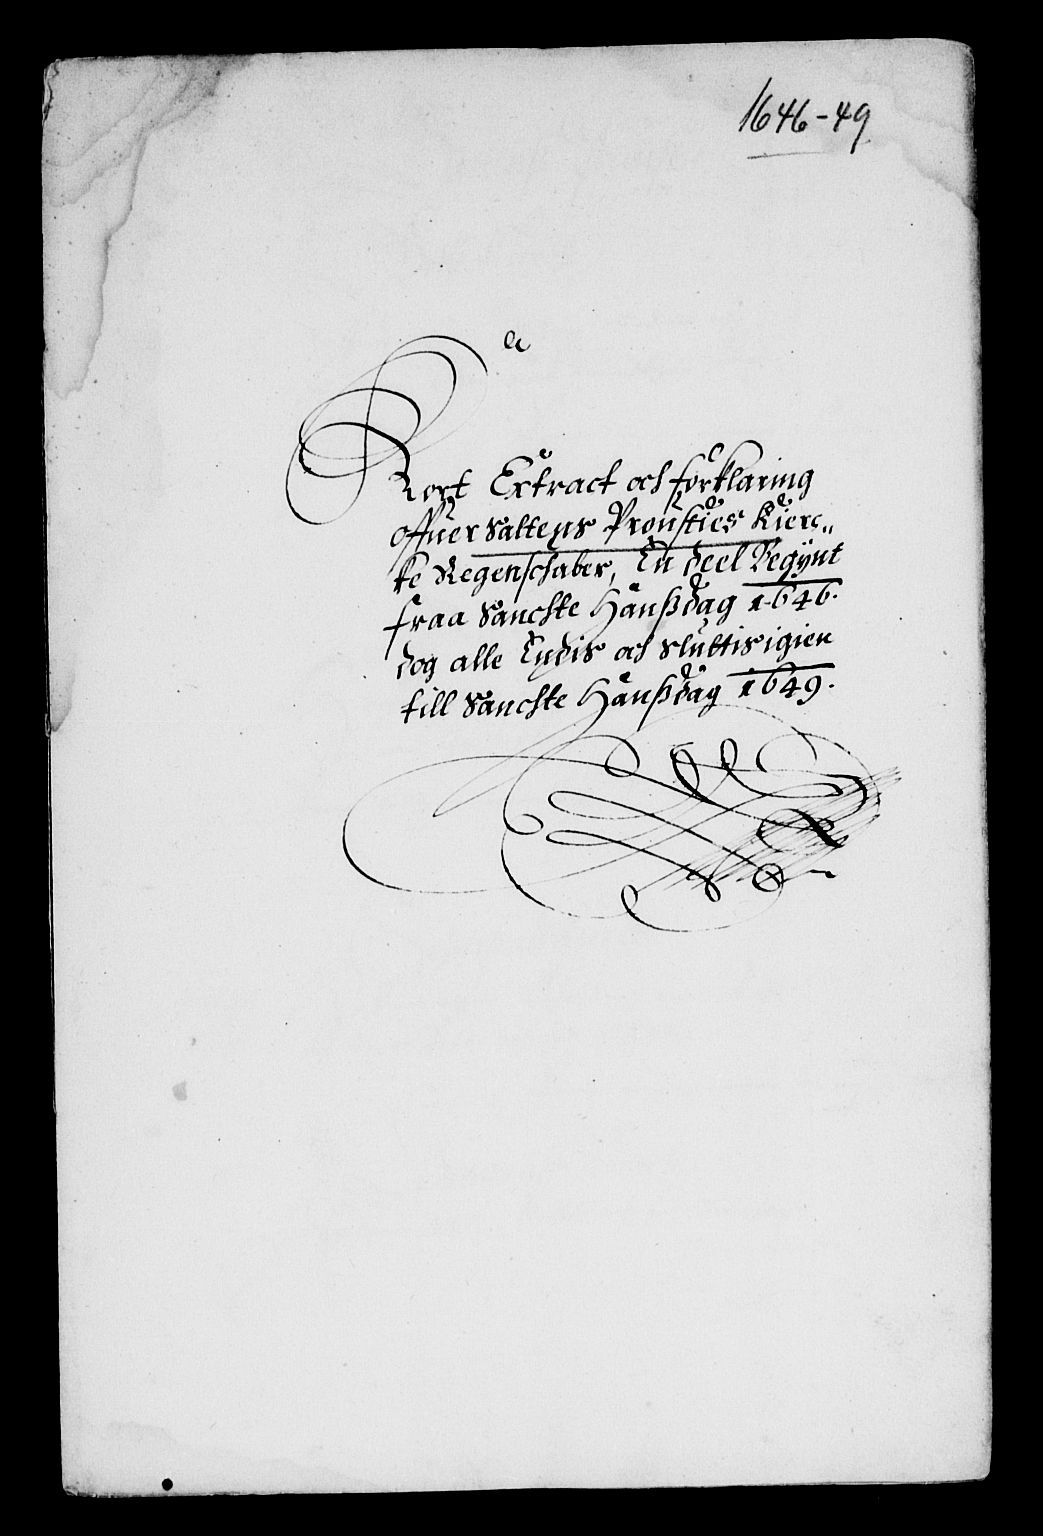 1646-49
a
Kort Extract och forklaring
offuer Saltens Prousties Kierc„
ke Regenschaber, En deel Begynt
fraa Sancste Hanßdag 1646.
dog alle Endis och Sluttis igien
till Sancste Hanßdag 1649.